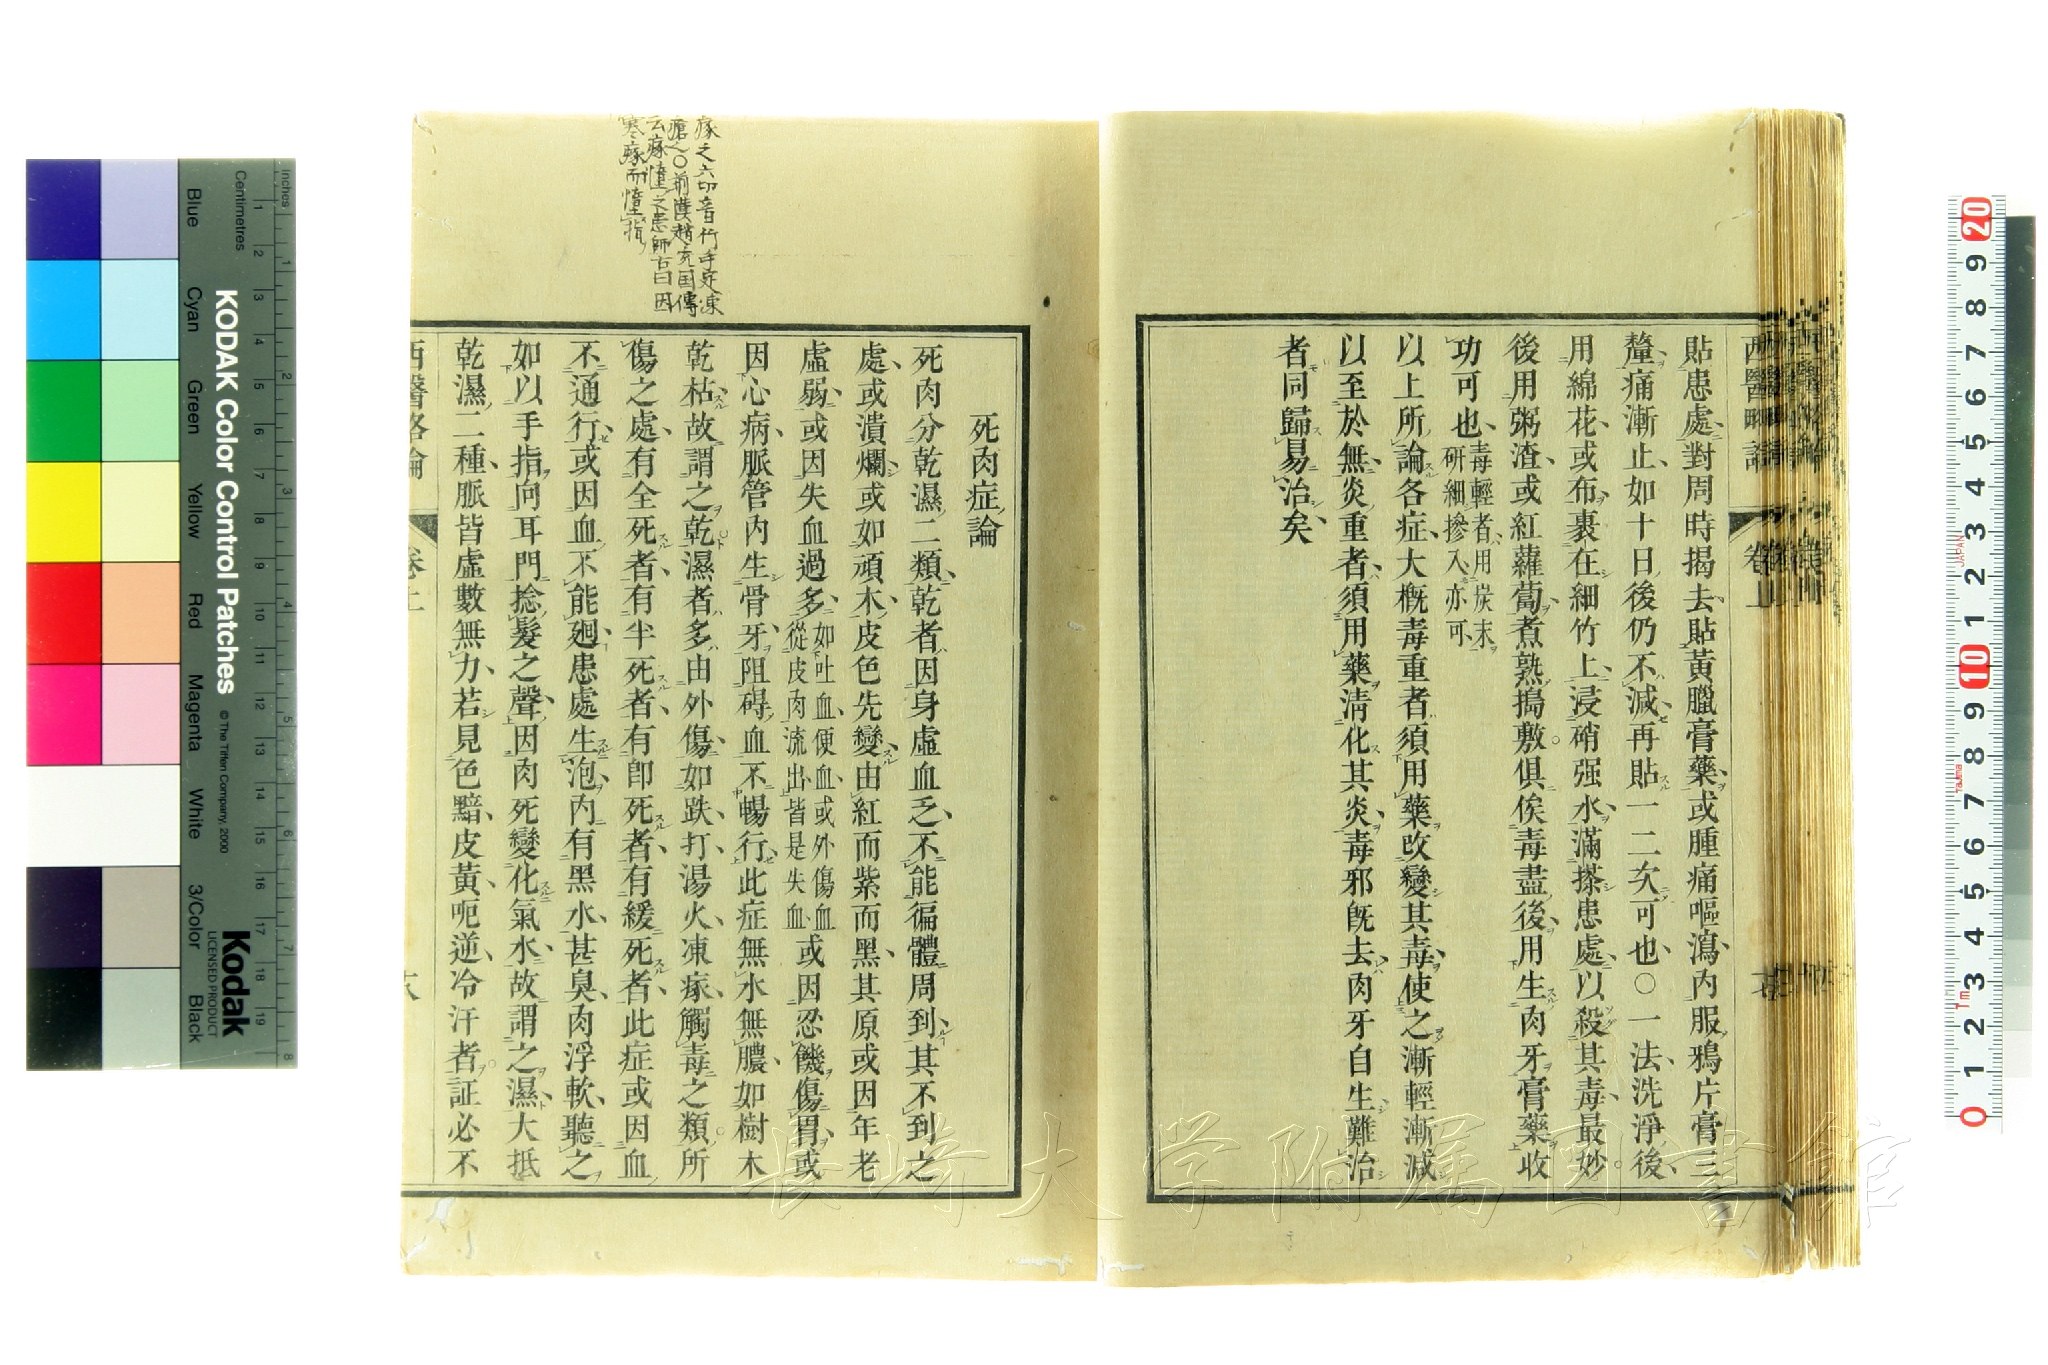 貼患處對周時揭去貼黃臘膏藥或腫痛嘔瀉內服鴉片膏三
釐痛漸止如十日後仍不減再貼一二次可也○一法洗淨後
用綿花或布裹在細竹上浸硝强水滿搽患處以殺其毒最妙
後用粥渣或紅蘿蔔煮熟搗敷俱俟毒盡後用生肉牙膏藥收
功可也毒輕者用炭末
研細摻入亦可
以上所論各症大概毒重者須用藥改變其毒使之漸輕漸減
以至於無炎重者須用藥清化其炎毒邪旣去肉牙自生難治
者同歸易治矣
西醫畧論
卷上
瘃之六切音竹手足凍
瘡〇前漢趙充国傳
云瘃憧之患師古曰因
寒瘃而憧指
死肉症論
死肉分乾濕二類乾者因身虛血乏不能徧體周到其不到之
處或潰爛或如頑木皮色先變由紅而紫而黑其原或因年老
虛弱或因失血過多如吐血便血或外傷血
從皮肉流出皆是失血或因忍饑傷胃或
因心病脈管內生骨牙阻碍血不暢行此症無水無膿如樹木
乾枯故謂之乾濕者多由外傷如跌打湯火凍瘃觸毒之類所
傷之處有全死者有半死者有卽死者有緩死者此症或因血
不通行或因血不能廻患處生泡內有黑水甚臭肉浮軟聽之
如以手指向耳門捻髮之聲因肉死變化氣水故謂之濕大抵
乾濕二種脈皆虛數無力若見色黯皮黃呃逆冷汗者証必不
西醫畧論
卷上
六
長崎大学附属図書館
KODAK Color Control Patches
© The Tiffen Company, 2000
Kodak
LICENSED PRODUCT
Centimetres
Inches
Blue
Cyan
Green
Yellow
Red
Magenta
White
3/Color
Black